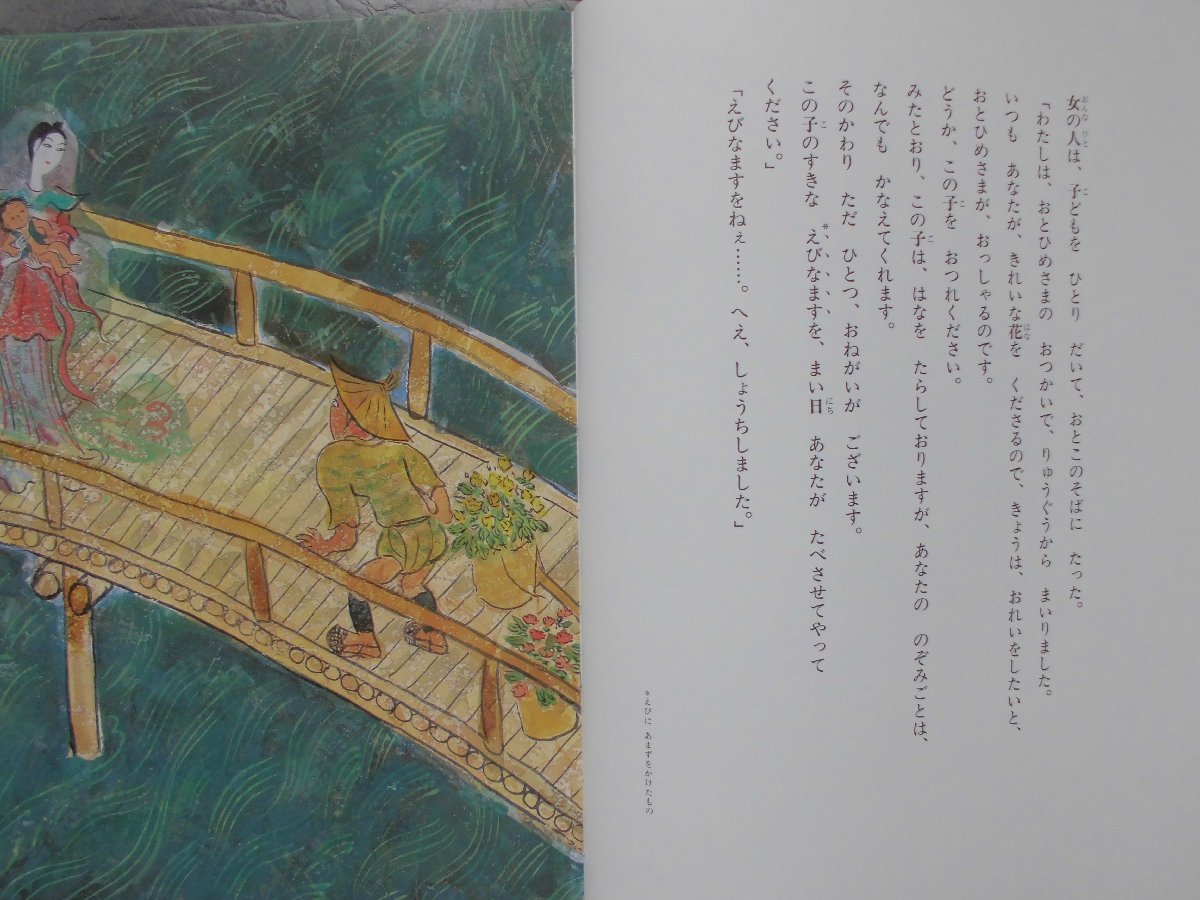 女の人は、子どもを　ひとり　だいて、おとこのそばに　たった。
「わたしは、おとひめさまの　おつかいで、りゅうぐうから　まいりました。
いつも　あなたが、きれいな花を　くださるので、きょうは、おれいをしたいと、
おとひめさまが、おっしゃるのです。
どうか、この子を　おつれください。
みたとおり、この子は、はなを　たらしておりますが、あなたの　のぞみごとは、
なんでも　かなえてくれます。
そのかわり　ただ　ひとつ、おねがいが　ございます。
この子のすきな　＊えびなますを、まい日　あなたが　たべさせてやって
ください。」
「えびなますをねぇ……。へえ、しょうちしました。」
＊えびに　あまずをかけたもの